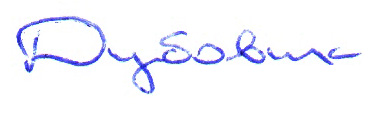 Дубовик